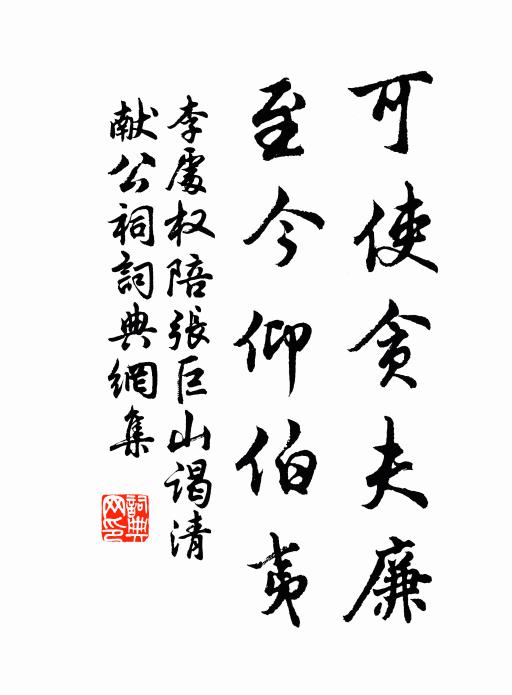 可使贪夫廉
至今仰伯夷
李處权陪張巨山谒清
献公祠詞典網集
詞典
网印